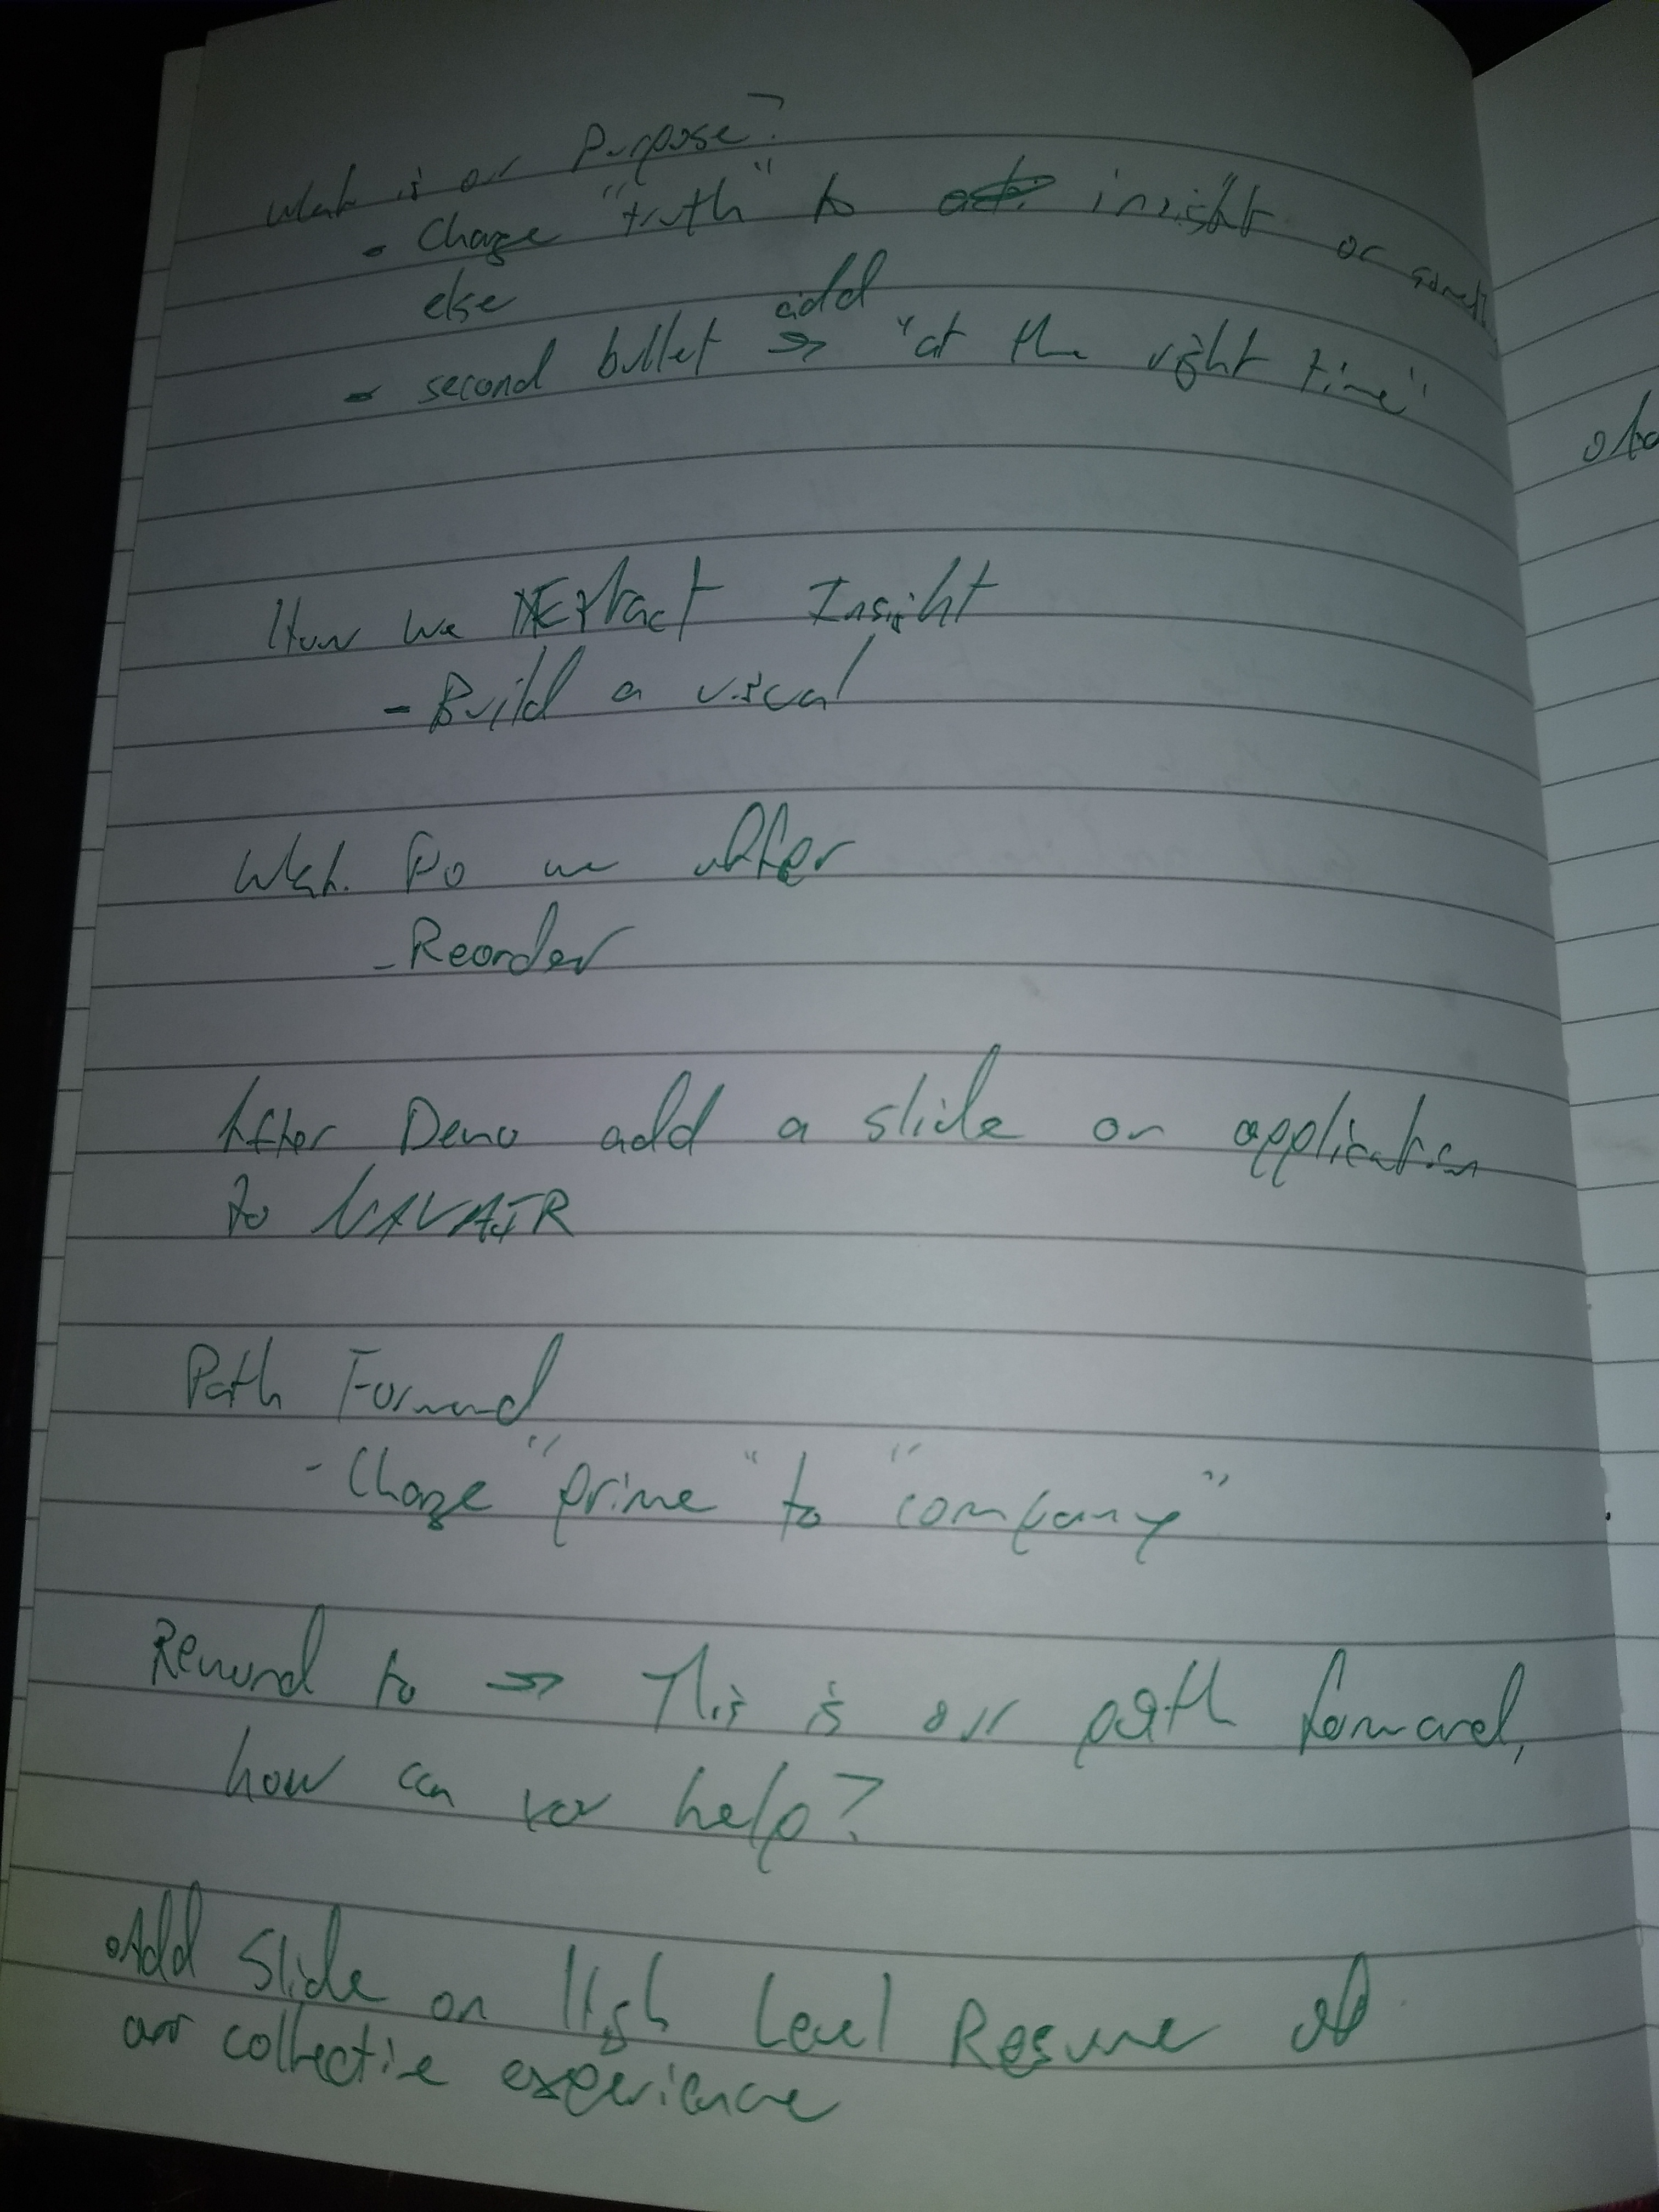 What is our Purpose?
- Change "truth" to insight or
else
add
- second bullet => "at the right time"
How we Extract Insight
- Build a visual
What Do we offer
- Reorder
After Demo add a slide on application
to NAVAIR
Path Forward
- Change "prime" to "company"
Reword to => This is our path forward,
how can you help?
Add Slide on High Level Resume of
our collective experience